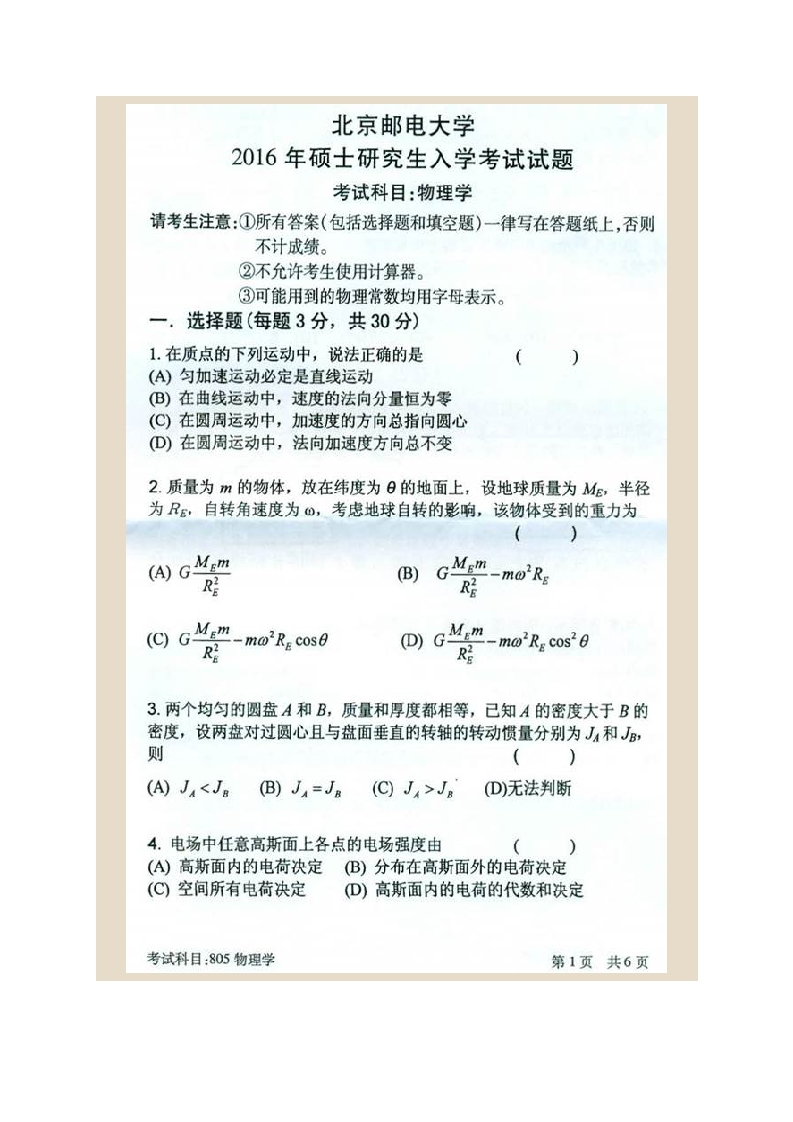 北京邮电大学
2016 年硕士研究生入学考试试题
考试科目:物理学
请考生注意:①所有答案(包括选择题和填空题)一律写在答题纸上,否则
不计成绩。
②不允许考生使用计算器。
③可能用到的物理常数均用字母表示。
一．选择题(每题 3 分，共 30 分)
1. 在质点的下列运动中，说法正确的是 ( )
(A) 匀加速运动必定是直线运动
(B) 在曲线运动中，速度的法向分量恒为零
(C) 在圆周运动中，加速度的方向总指向圆心
(D) 在圆周运动中，法向加速度方向总不变
2. 质量为 m 的物体，放在纬度为 θ 的地面上，设地球质量为 M_E，半径
为 R_E，自转角速度为 ω，考虑地球自转的影响，该物体受到的重力为
( )
(A) G\frac{M_E m}{R_E^2} (B) G\frac{M_E m}{R_E^2} - mω^2 R_E
(C) G\frac{M_E m}{R_E^2} - mω^2 R_E cosθ (D) G\frac{M_E m}{R_E^2} - mω^2 R_E cos^2 θ
3. 两个均匀的圆盘 A 和 B，质量和厚度都相等，已知 A 的密度大于 B 的
密度，设两盘对过圆心且与盘面垂直的转轴的转动惯量分别为 J_A 和 J_B，
则 ( )
(A) J_A < J_B (B) J_A = J_B (C) J_A > J_B (D)无法判断
4. 电场中任意高斯面上各点的电场强度由 ( )
(A) 高斯面内的电荷决定 (B) 分布在高斯面外的电荷决定
(C) 空间所有电荷决定 (D) 高斯面内的电荷的代数和决定
考试科目:805 物理学 第 1 页 共 6 页